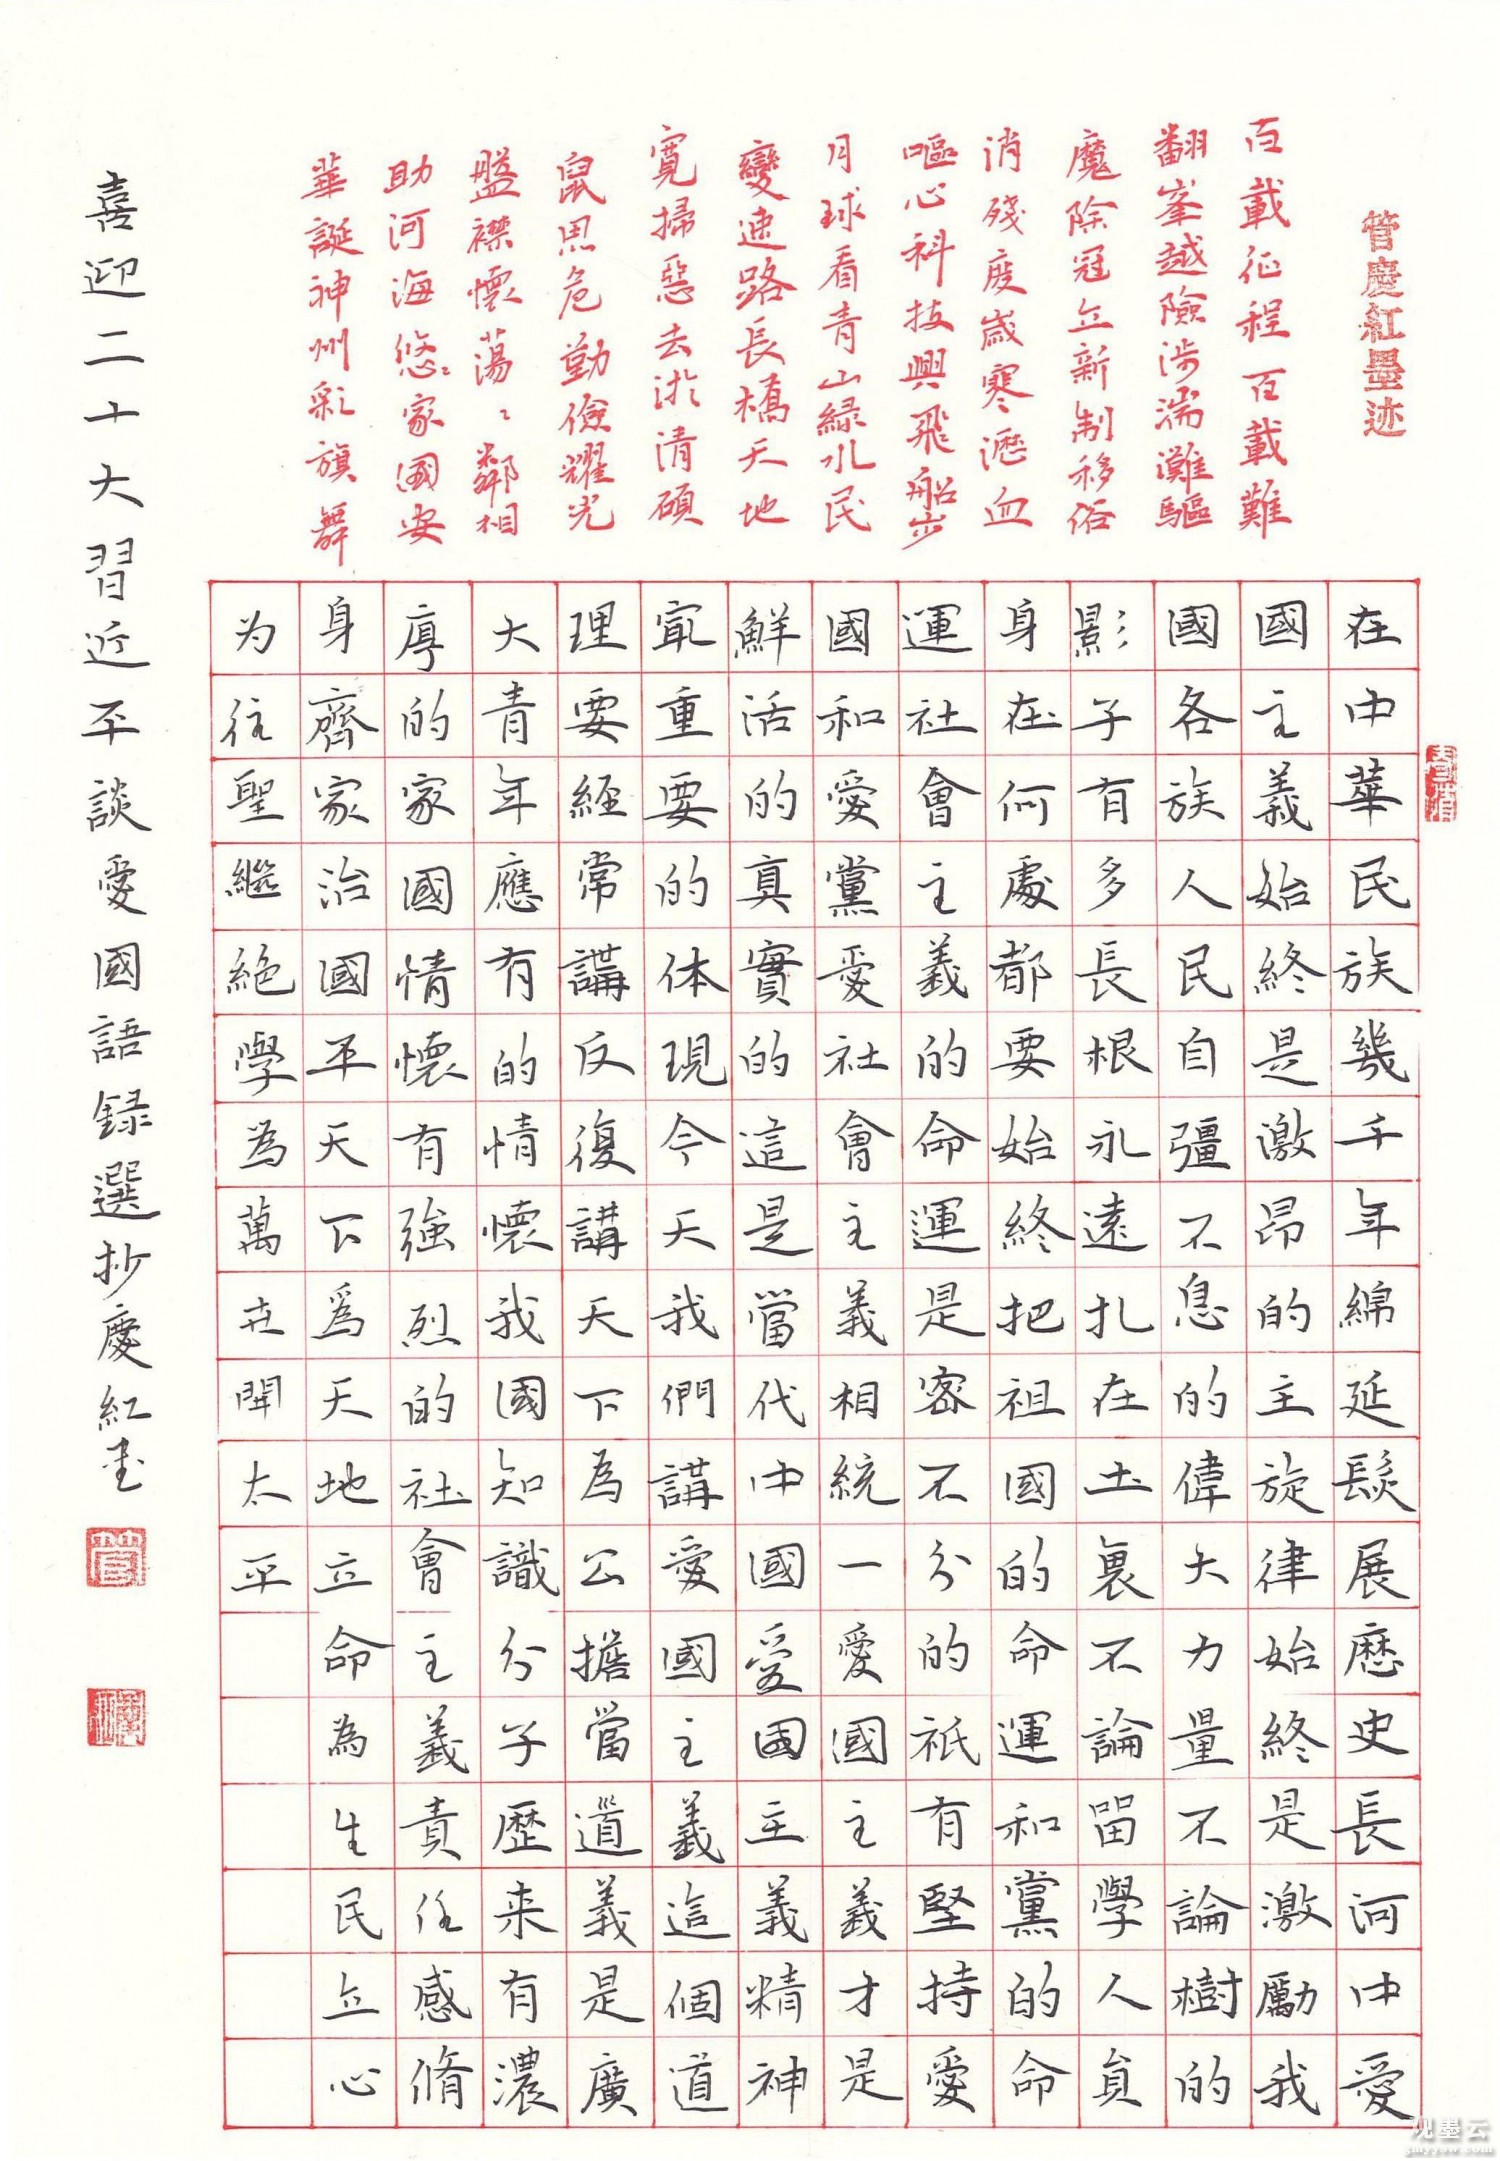 管慶紅墨迹
百載征程百載難
翻峯越險涉湍灘驅
魔除寇立新制移俗
消殘度歲寒瀝血
嘔心科技興飛船步
月球看青山緑水民
變速路長橋天地
寬掃惡去淤清碩
鼠思危勤儉耀光
盤襟懷蕩〻鄰相
助河海悠〻家國安
華誕神州彩旗舞
在中華民族幾千年綿延髮展歷史長河中愛
國主義始終是激昂的主旋律始終是激勵我
國各族人民自彊不息的偉大力量不論樹的
影子有多長根永遠扎在土裏不論留學人員
身在何處都要始終把祖國的命運和黨的命
運社會主義的命運是密不分的祇有堅持愛
國和愛黨愛社會主義相統一愛國主義才是
鮮活的真實的這是當代中國愛國主義精神
冣重要的体現今天我們講愛國主義這個道
理要經常講反復講天下為公擔當道義是廣
大青年應有的情懷我國知識分子歷来有濃
厚的家國情懷有強烈的社會主義責任感脩
身齊家治國平天下爲天地立命為生民立心
为往聖繼絕學為萬世開太平
喜迎二十大習近平談愛國語録選抄慶紅書
观墨云